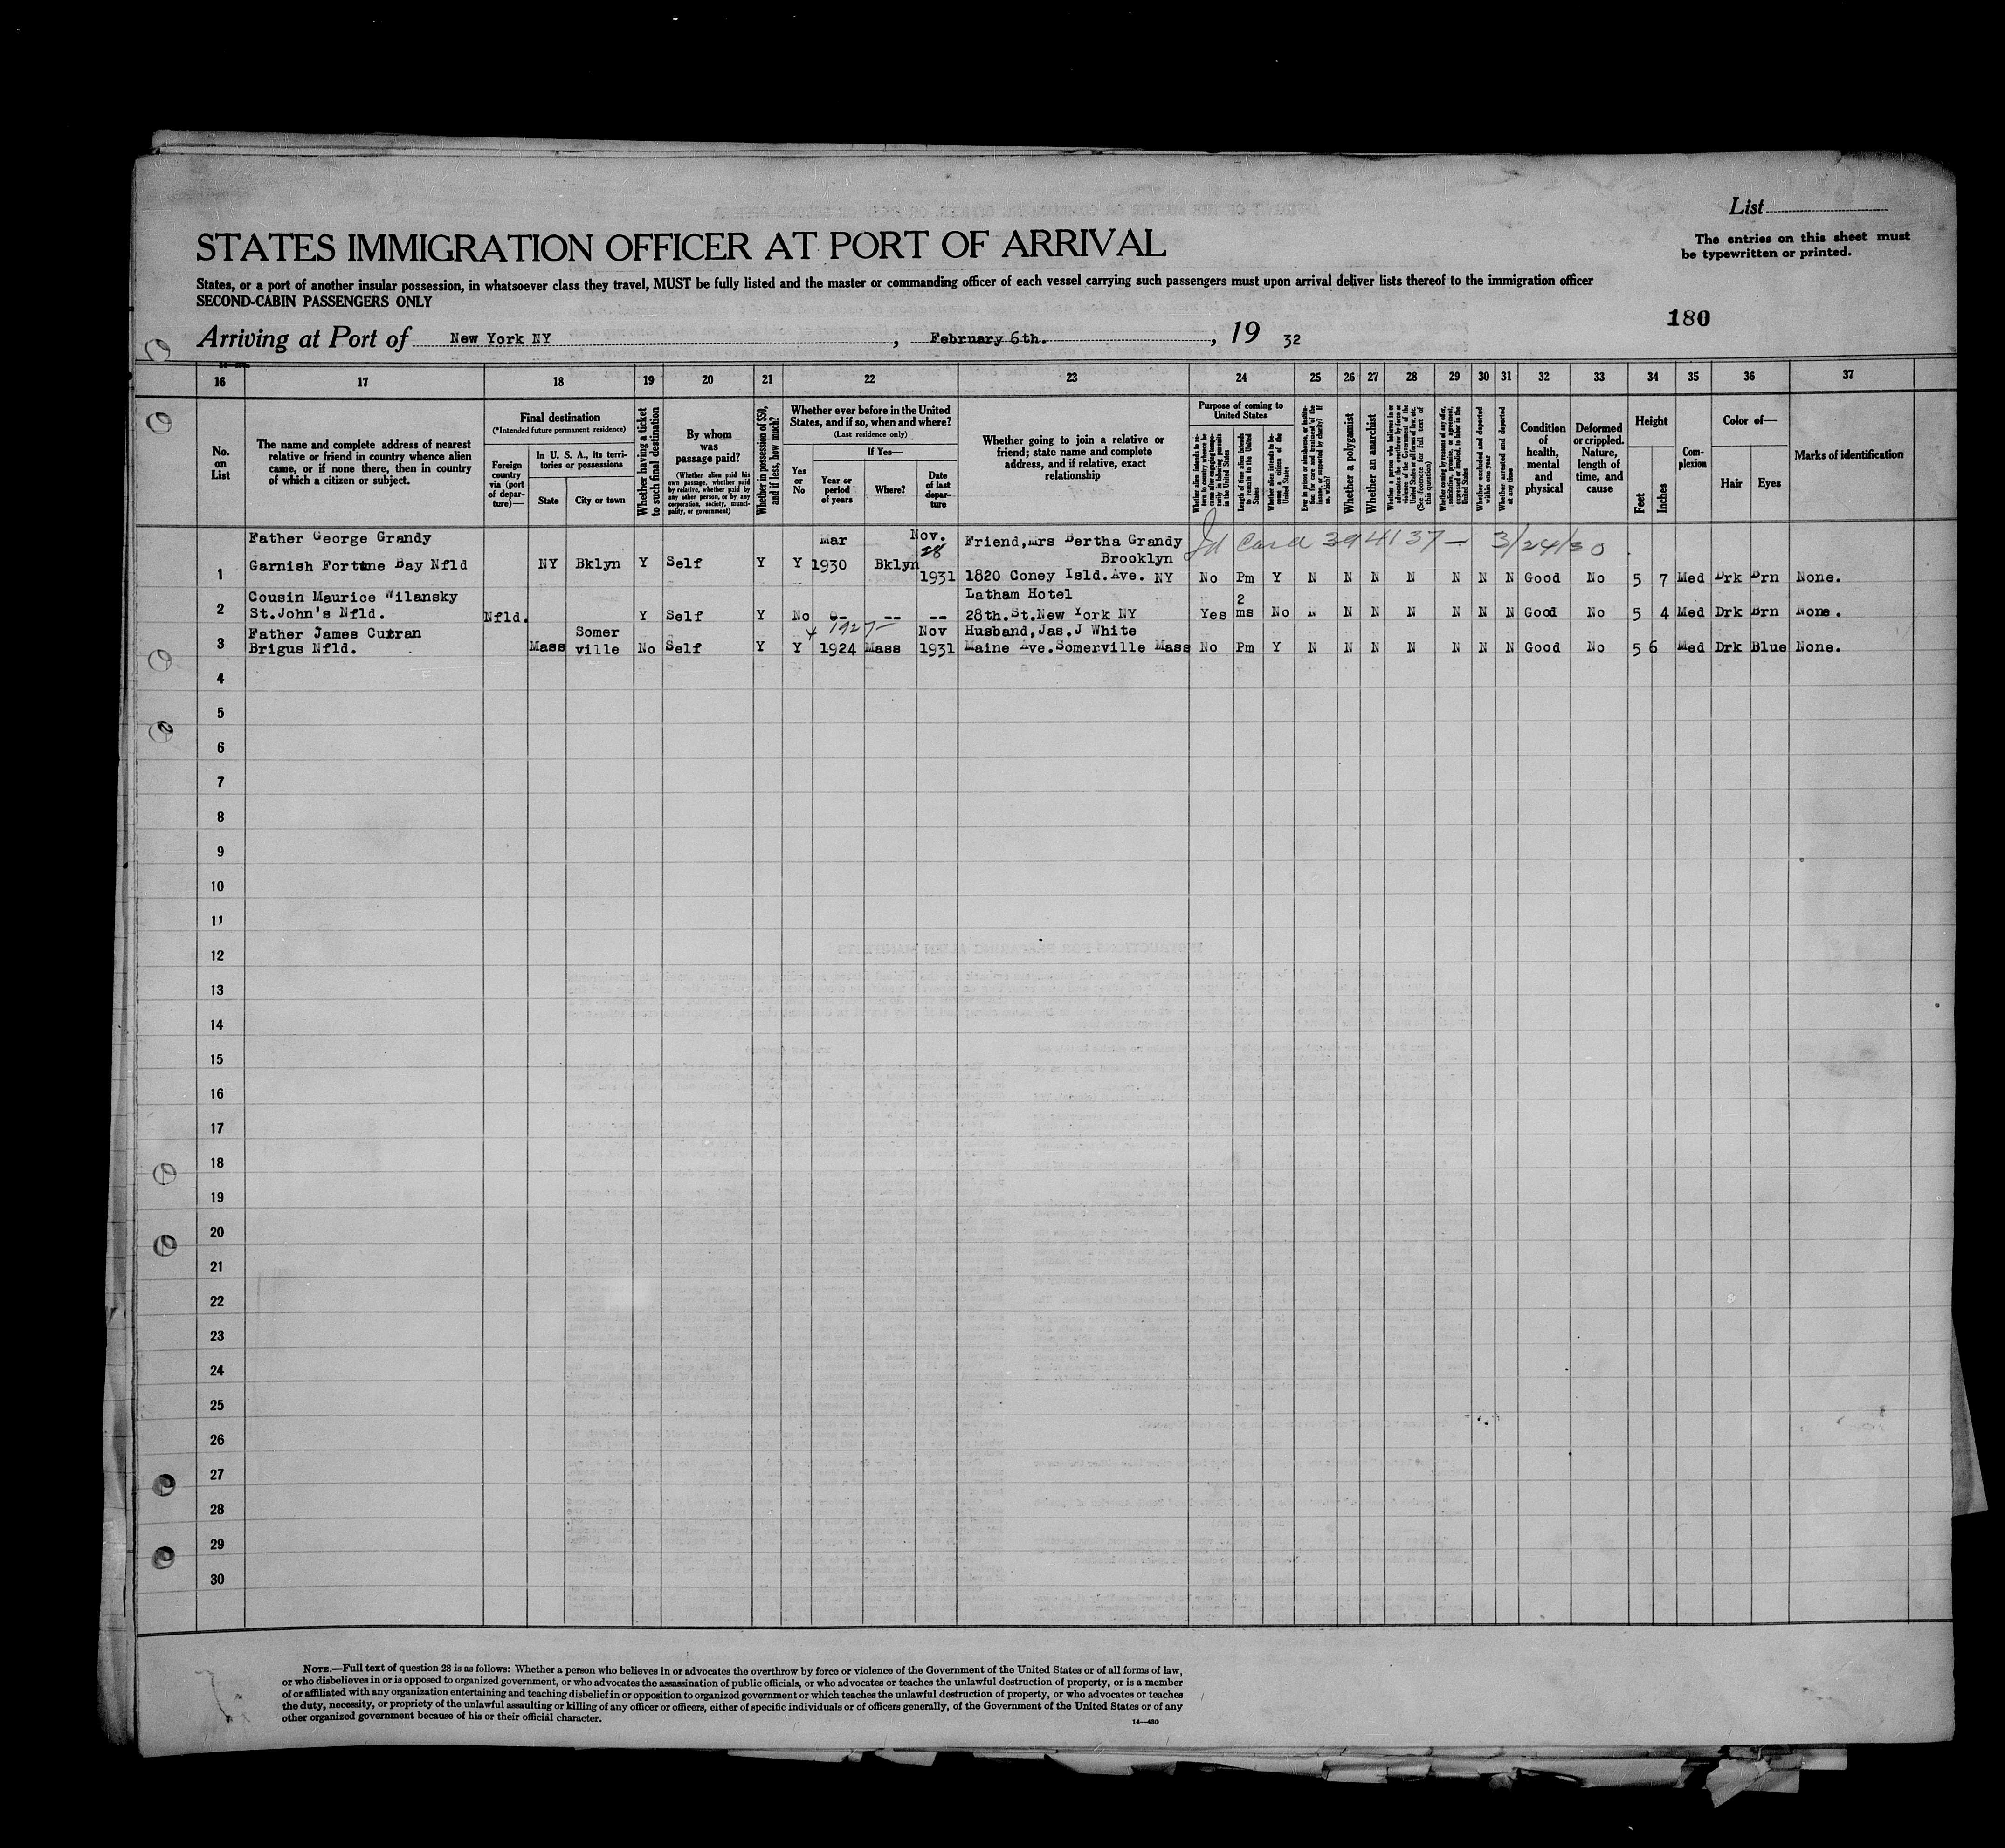 List
STATES IMMIGRATION OFFICER AT PORT OF ARRIVAL
The entries on this sheet must
be typewritten or printed.
States, or a port of another insular possession, in whatsoever class they travel, MUST be fully listed and the master or commanding officer of each vessel carrying such passengers must upon arrival deliver lists thereof to the immigration officer
SECOND-CABIN PASSENGERS ONLY
180
Arriving at Port of New York NY, February 6th., 19 32
16 17 18 19 20 21 22 23 24 25 26 27 28 29 30 31 32 33 34 35 36 37
No. on List
The name and complete address of nearest relative or friend in country whence alien came, or if none there, then in country of which a citizen or subject.
Final destination
(*Intended future permanent residence)
Foreign country via (port of departure)—
In U. S. A., its territories or possessions
State
City or town
Whether having a ticket to such final destination
By whom was passage paid?
(Whether alien paid his own passage, whether paid by relative, whether paid by any other person, or by any corporation, society, municipality, or government)
Whether in possession of $50, and if less, how much?
Whether ever before in the United States, and if so, when and where?
(Last residence only)
Yes or No
If Yes—
Year or period of years
Where?
Date of last departure
Whether going to join a relative or friend; state name and complete address, and if relative, exact relationship
Purpose of coming to United States
Length of time alien intends to remain in the United States
Whether alien intends to become a citizen of the United States
Whether a polygamist
Whether an anarchist
(See footnote for full text of this question)
Whether excluded and deported within one year
Whether arrested and deported at any time
Condition of health, mental and physical
Deformed or crippled. Nature, length of time, and cause
Height
Feet
Inches
Complexion
Color of—
Hair
Eyes
Marks of identification
Father George Grandy Mar Nov. 28 Friend,Mrs Bertha Grandy Id Card 394137— 3/24/30
Garnish Fortune Bay Nfld NY Bklyn Y Self Y Y 1930 Bklyn Brooklyn
1 1931 1820 Coney Isld.Ave. NY No Pm Y N N N N N N N Good No 5 7 Med Drk Brn None.
Cousin Maurice Wilansky Latham Hotel 2
2 St.John's Nfld. Nfld. Y Self Y No -- -- 28th.St.New York NY Yes ms No N N N N N N N Good No 5 4 Med Drk Brn None.
Father James Curran Somer 1927— Nov Husband,Jas.J White
3 Brigus Nfld. Mass ville No Self Y Y 1924 Mass 1931 Maine Ave.Somerville Mass No Pm Y N N N N N N N Good No 5 6 Med Drk Blue None.
4
5
6
7
8
9
10
11
12
13
14
15
16
17
18
19
20
21
22
23
24
25
26
27
28
29
30
NOTE.—Full text of question 28 is as follows: Whether a person who believes in or advocates the overthrow by force or violence of the Government of the United States or of all forms of law,
or who disbelieves in or is opposed to organized government, or who advocates the assassination of public officials, or who advocates or teaches the unlawful destruction of property, or is a member
of or affiliated with any organization entertaining and teaching disbelief in or opposition to organized government or which teaches the unlawful destruction of property, or who advocates or teaches
the duty, necessity, or propriety of the unlawful assaulting or killing of any officer or officers, either of specific individuals or of officers generally, of the Government of the United States or of any
other organized government because of his or their official character.
14—430